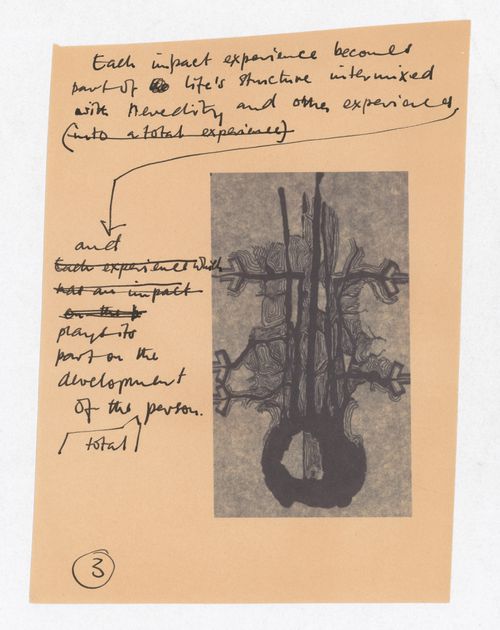 Each impact experience becomes
part of life's structure intermixed
with heredity and other experiences
(into a total experience)
and
Each experience which
has an impact
on the
plays its
part on the
development
of the person.
total
3